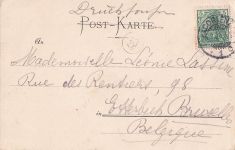 Drucksache
POST-KARTE.
Mademoiselle Léonie Lassine
Rue des Rentiers, 98
Etterbeek Bruxelles
Belgique